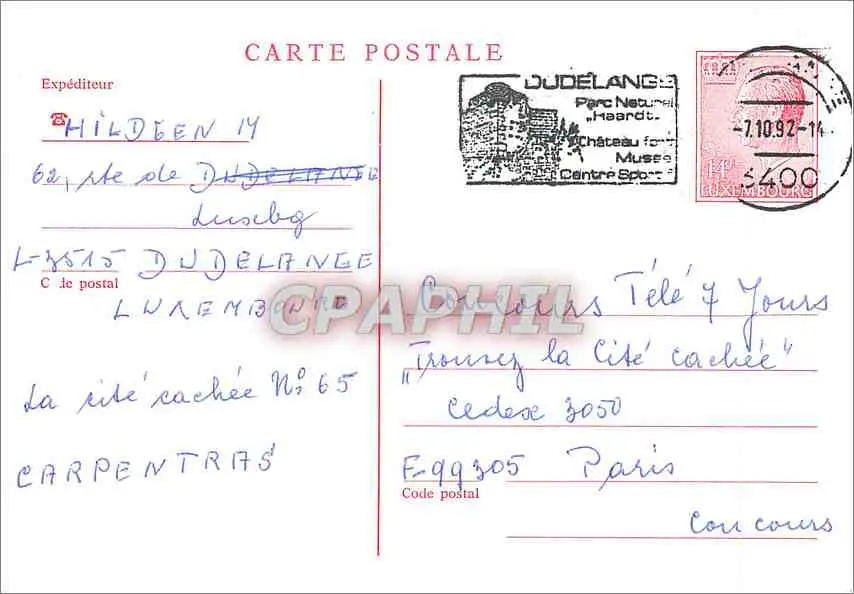 CARTE POSTALE
Expéditeur
HILDGEN M
62, rte de DUDELANGE
Luxbg
L-3515 DUDELANGE
Code postal
LUXEMBOURG
La cité cachée No 65
CARPENTRAS
DUDELANGE
Parc Naturel
„Haardt"
Château fort
Musée
Centre Sport
-7.10.92-14
3400
14F
LUXEMBOURG
Concours Télé 7 Jours
„Trouvez la Cité cachée"
Cedex 3050
F-99305 Paris
Code postal
Concours
CPAPHIL